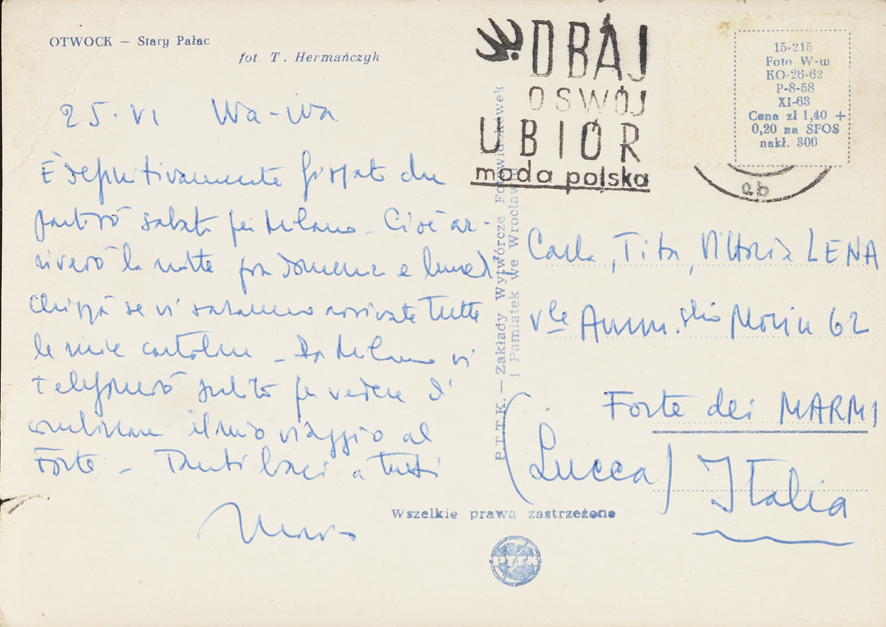 OTWOCK — Stary Pałac
fot. T. Hermańczyk
DBAJ
O SWÓJ
UBIÓR
moda polska
15-215
Foto W-w
KO-26-62
P-8-58
XI-63
Cena zł 1,40 +
0,20 na SFOS
nakł. 300
ab
25·VI Wa-Wa
È definitivamente fissato che
partirò sabato per Milano - Cioè ar-
riverò la notte fra domenica e lunedì
Chissà se vi saranno arrivate tutte
le mie cartoline - Da Milano vi
telefonerò subito per vedere di
combinare il mio viaggio al
Forte - Tanti baci a tutti
P.T.T.K. — Zakłady Wytwórcze Fotowidokówek
i Pamiątek we Wrocławiu
Carla, Tita, Vittoria LENA
vle Amm.glio Morin 62
Forte dei MARMI
(Lucca) Italia
Wszelkie prawa zastrzeżone
PTTK